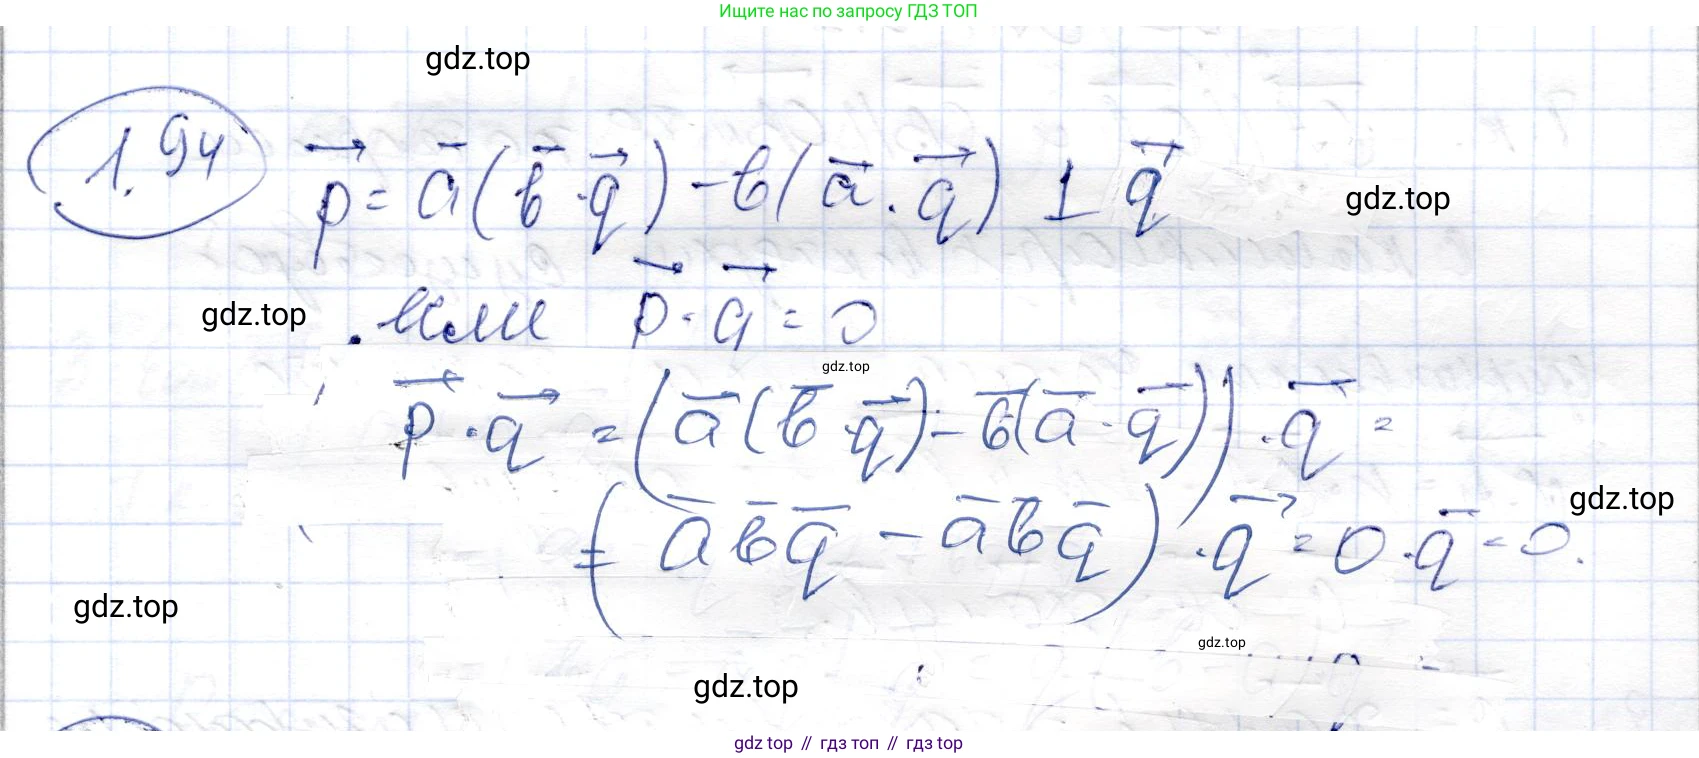 Ищите нас по запросу ГДЗ ТОП
gdz.top
1.94
p⃗ = a⃗(b⃗·q⃗) - b(a⃗·q⃗) ⊥ q⃗
gdz.top
gdz.top
или p⃗·q⃗ = 0
gdz.top
p⃗·q⃗ = (a⃗(b⃗·q⃗) - b⃗(a⃗·q⃗))·q⃗ =
= (a⃗b⃗q⃗ - a⃗b⃗q⃗)·q⃗ = 0·q⃗ = 0.
gdz.top
gdz.top
gdz.top
gdz.top
gdz top // гдз топ // гдз top